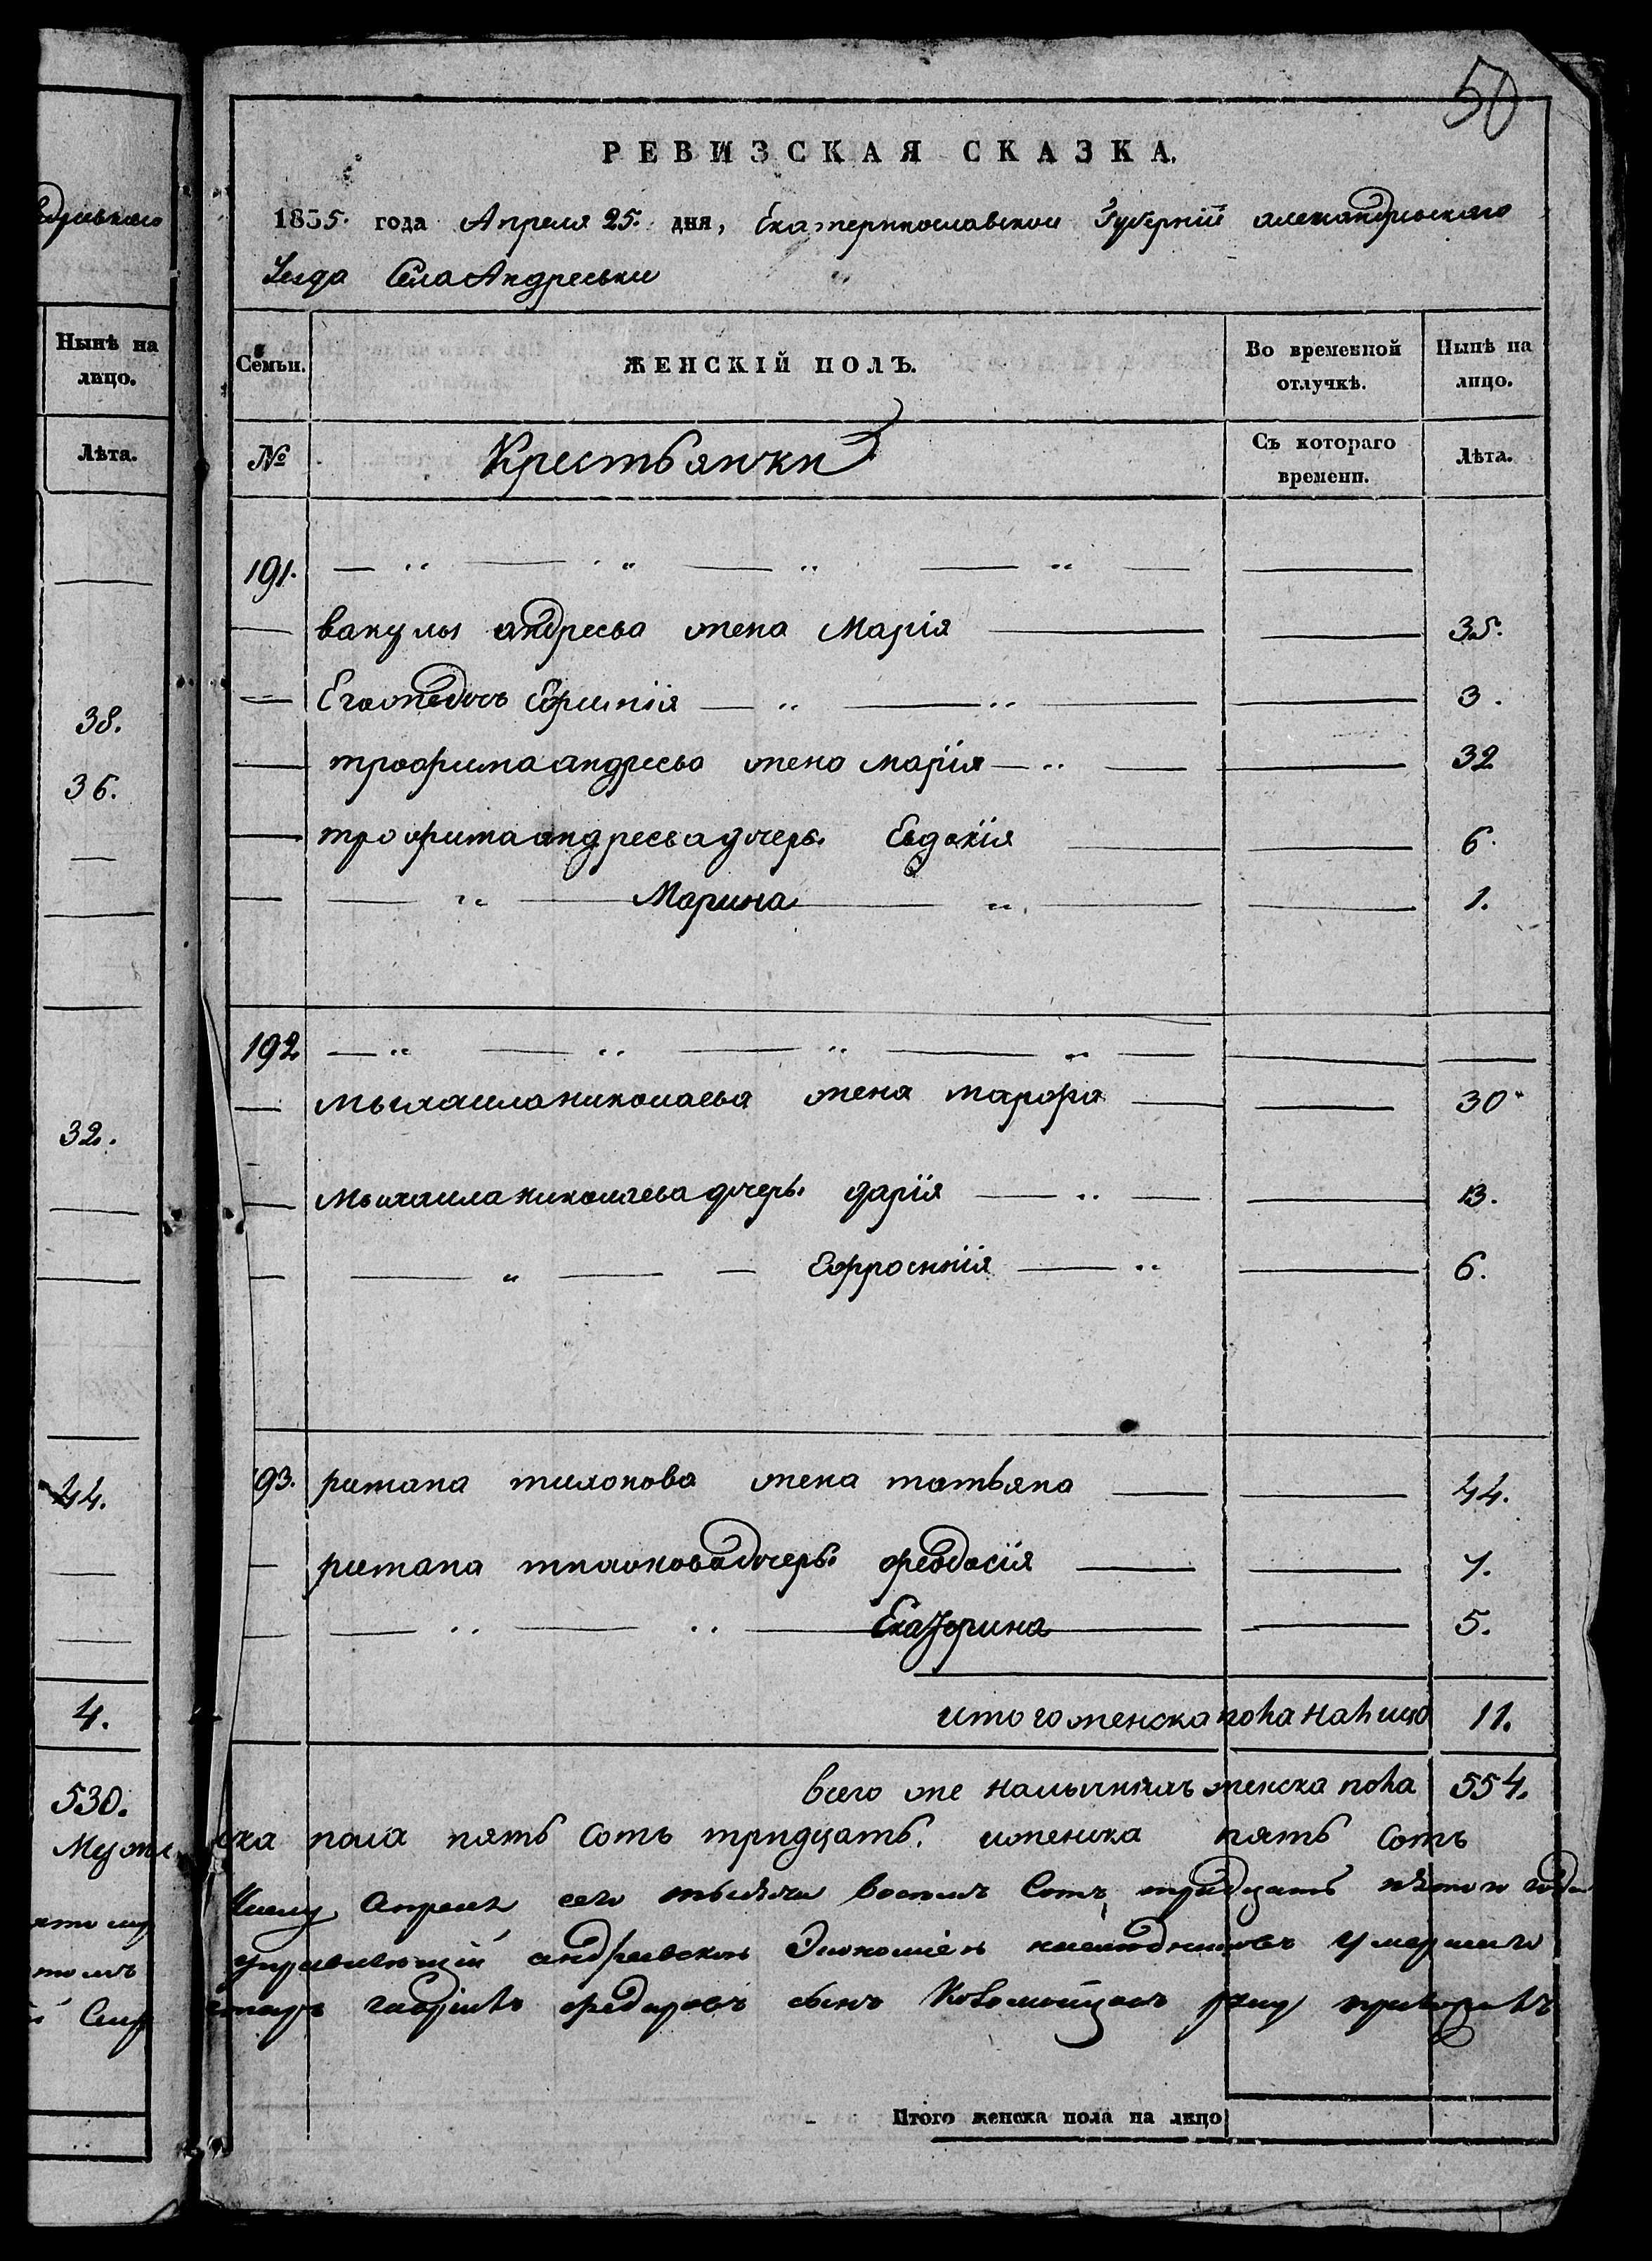 50
РЕВИЗСКАЯ СКАЗКА.
1835. года Апреля 25. дня, Екатеринославской Губернїй александровскаго
Уезда Села Андреевки
Нынѣ на лицо.
Лѣта.
38.
36.
32.
44.
4.
530.
Семьи. ЖЕНСКІЙ ПОЛЪ. Во временной отлучкѣ. Нынѣ на лицо.
№ Крестьянки Съ котораго времени. Лѣта.
191.
вакулы андреева жена Марія 35.
Его жедочь Ефимія 3.
трофима андреева жена марїя 32
трофима андреева дочерь. Евдокїя 6.
Марина 1.
192
мыхаила николаева жена марфа 30
мыхаила николаева дочерь. дарїя 13.
Ефросинїя 6.
193. романа тихонова жена татьяна 44.
романа тихонова дочерь. феодосїя 7.
Екатерина 5.
итого женска пола на лицо 11.
всего же наличныхъ женска пола 554.
Мужеска пола пять сотъ тридцать. иженска пять сотъ
апреля сего тысяча восемъ Сотъ тридцать пятого года
управляющїй андреевской Экономіей наследниковъ умершего
гавріилъ федоровъ сынъ Коломойцовъ руку приложилъ
Итого женска пола на лицо